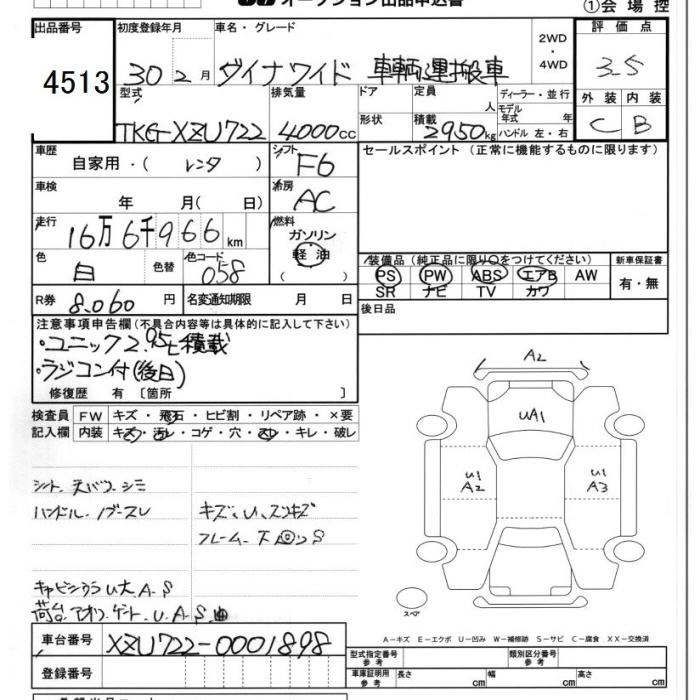 オークション出品申込書
①会場控
出品番号 4513
初度登録年月 30年2月
車名・グレード ダイナワイド 車輌運搬車
2WD・4WD
評価点 3.5
型式 TKG-XZU722
排気量 4000cc
ドア
形状
定員 人
積載 2950kg
ディーラー・並行
モデル年式 年
ハンドル 左・右
外装 C 内装 B
車歴 自家用・(レンタ)
シフト F6
セールスポイント(正常に機能するものに限ります)
車検 年 月(日)
冷房 AC
走行 16万6千966km
燃料 ガソリン 軽油 ( )
色 白 色替 色コード 058
装備品(純正品に限り○をつけてください)
PS PW ABS エアB AW
SR ナビ TV カワ
新車保証書 有・無
R券 8,060円
名変通知期限 月 日
後日品
注意事項申告欄(不具合内容等は具体的に記入して下さい)
・ユニック2.95t積載
・ラジコン付(後日)
修復歴 有 〔箇所 〕
検査員記入欄
FW キズ・飛石・ヒビ割・リペア跡・×要
内装 キズ・汚れ・コゲ・穴・スレ・キレ・破レ
A2
UA1
U1 A2
U1 A3
シート、天バリ、シミ
ハンドル、ノブースレ
キズ、U、スリキズ
フレーム、下回りS
キャビンウラU大A.S
荷台、アオリ、ゲート、U、A、S、曲
スペア
A-キズ E-エクボ U-凹み W-補修跡 S-サビ C-腐食 XX-交換済
車台番号 XZU722-0001898
型式指定番号 参考
類別区分番号 参考
登録番号
車庫証明用 参考 長さ cm 幅 cm 高さ cm